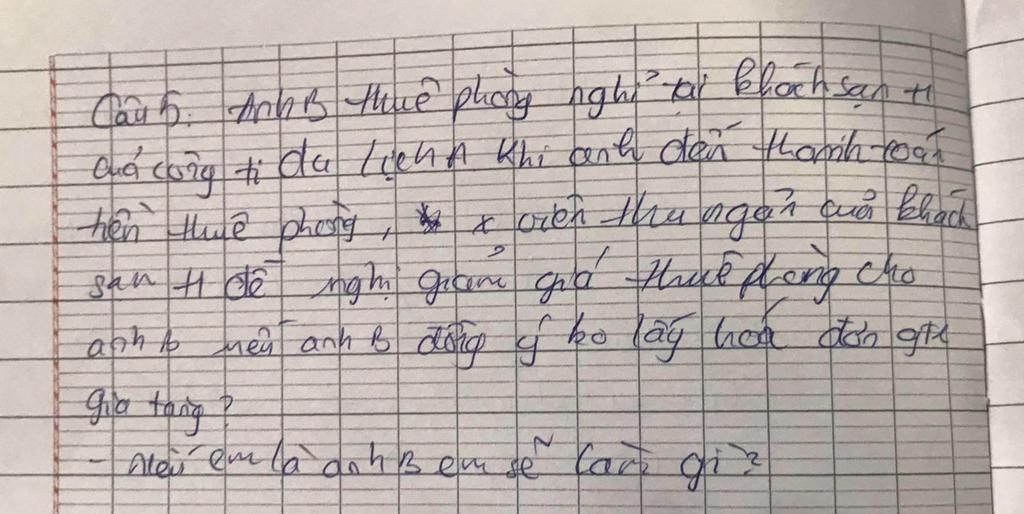 Câu 5. Anh B thuê phòng nghỉ tại khách sạn H
quá công ti du lịch A khi anh đến thanh toán
tiền thuê phòng, x viên thu ngân của khách
sạn H đề nghị giảm giá thuê phòng cho
anh B nếu anh B đồng ý ko lấy hoá đơn gtri
gia tăng?
- Nếu em là anh B em sẽ làm gì?